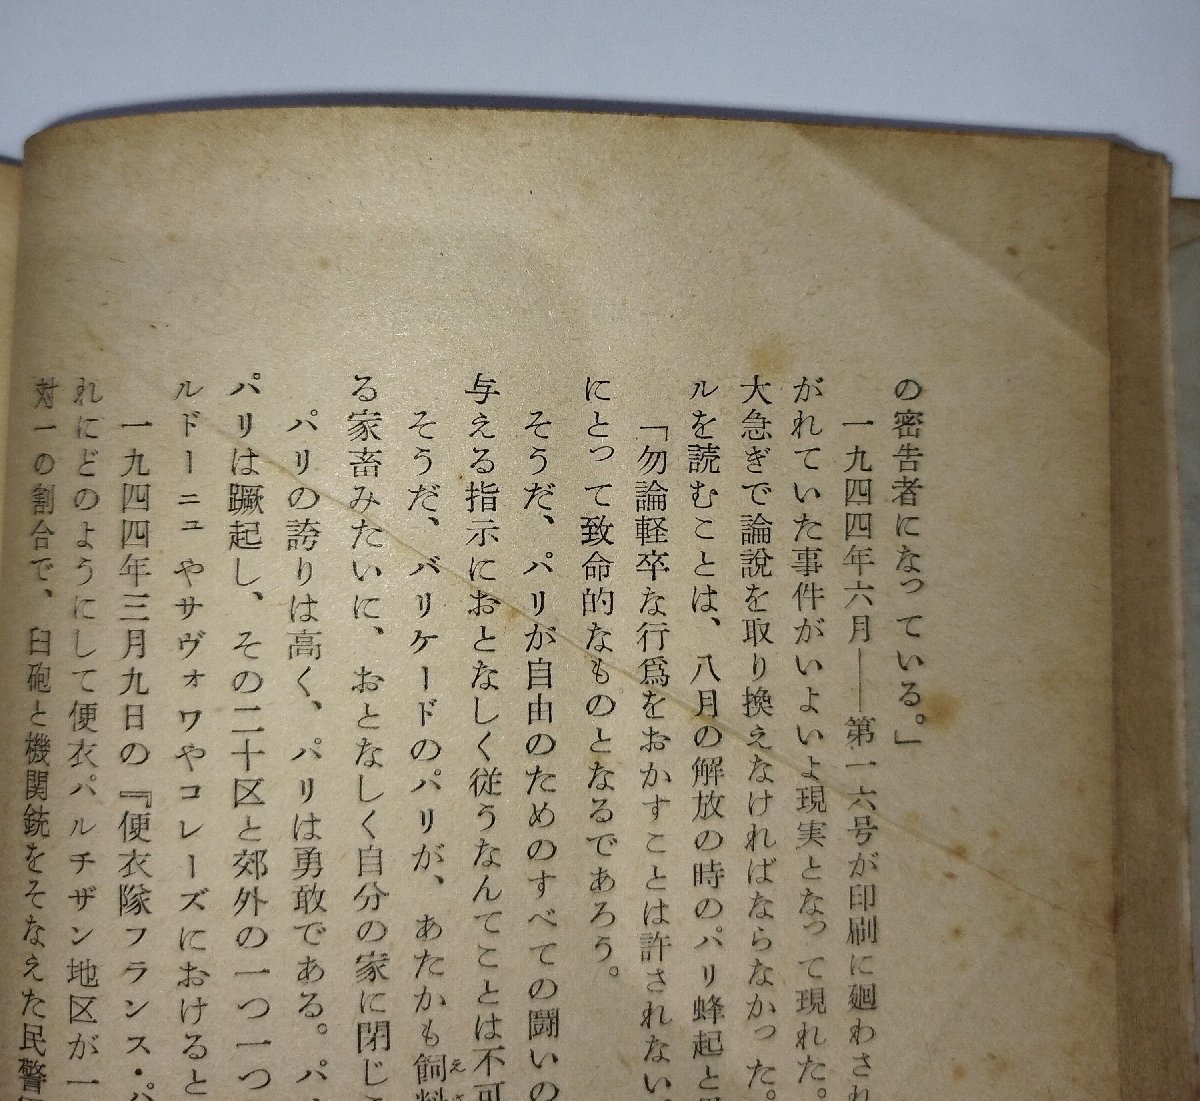 の密告者になっている。」
一九四四年六月――第一六号が印刷に廻わされ
がれていた事件がいよいよ現実となって現れた。
大急ぎで論説を取り換えなければならなかった。
ルを読むことは、八月の解放の時のパリ蜂起と
「勿論軽卒な行爲をおかすことは許されない。
にとって致命的なものとなるであろう。
そうだ、パリが自由のためのすべての闘いの
与える指示におとなしく従うなんてことは不可
そうだ、バリケードのパリが、あたかも飼料
る家畜みたいに、おとなしく自分の家に閉じこ
パリの誇りは高く、パリは勇敢である。パ
パリは蹶起し、その二十区と郊外の一つ一つ
ルドーニュやサヴォワやコレーズにおけると
一九四四年三月九日の『便衣隊フランス・パ
れにどのようにして便衣パルチザン地区が一
対一の割合で、臼砲と機関銃をそなえた民警